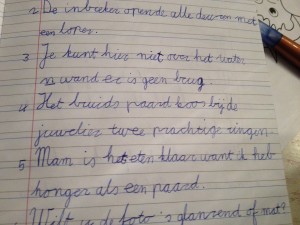 2 De inbreker opende alle deuren met
een loper.
3 Je kunt hier niet over het water
want er is geen brug
4 Het bruids paard koos bij de
juwelier twee prachtige ringen.
5 Mam is het eten klaar want ik heb
honger als een paard.
Wilt u de foto's glanzend of mat?